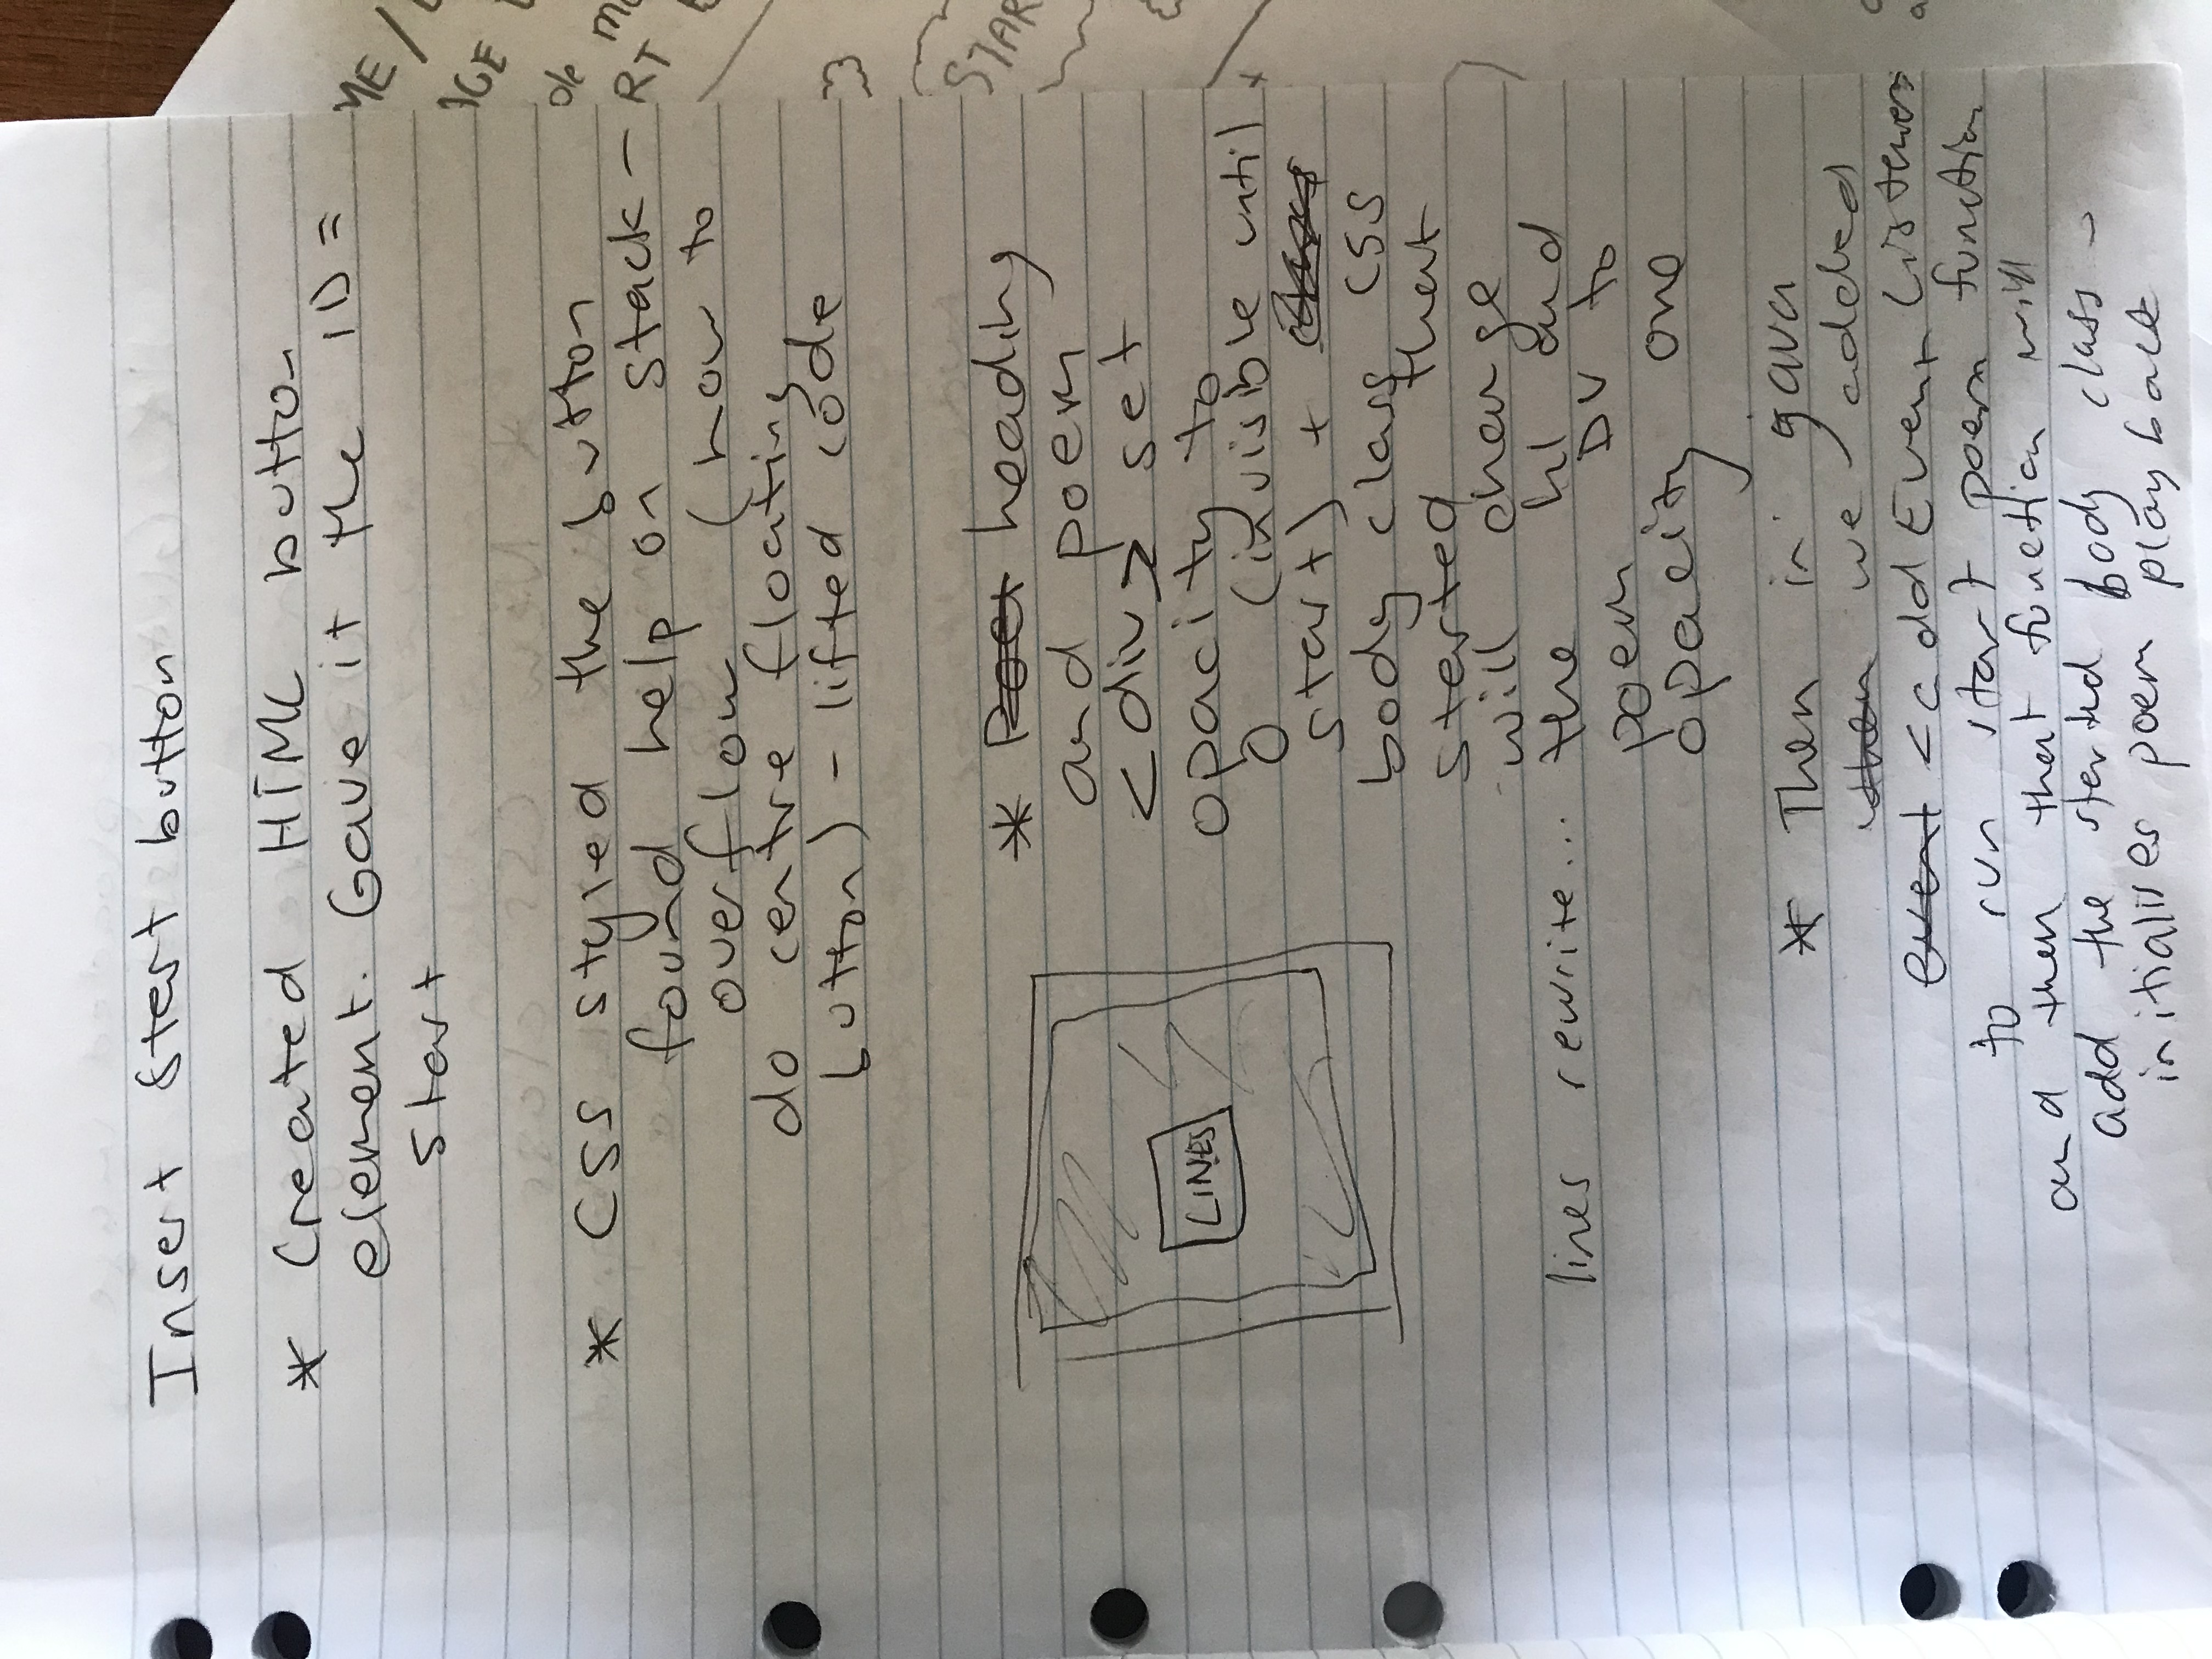 Insert Start button
* Created HTML button
element. Gave it the ID =
start
* CSS styled the button
found help on stack -
overflow (how to
do centre floating
button) - lifted code
* Poet heading
and poem
<div> set
opacity to
0 (invisible until
start) +
body class CSS
started that
will change
the h1 and
poem DV to
opacity one
LINES
lines rewrite...
* Then in gava
when we added
event <add Event Listener
to run start poem function
and then that function will
add the started body class -
initialises poem playback
ME/
AGE
ole
RT
STAR